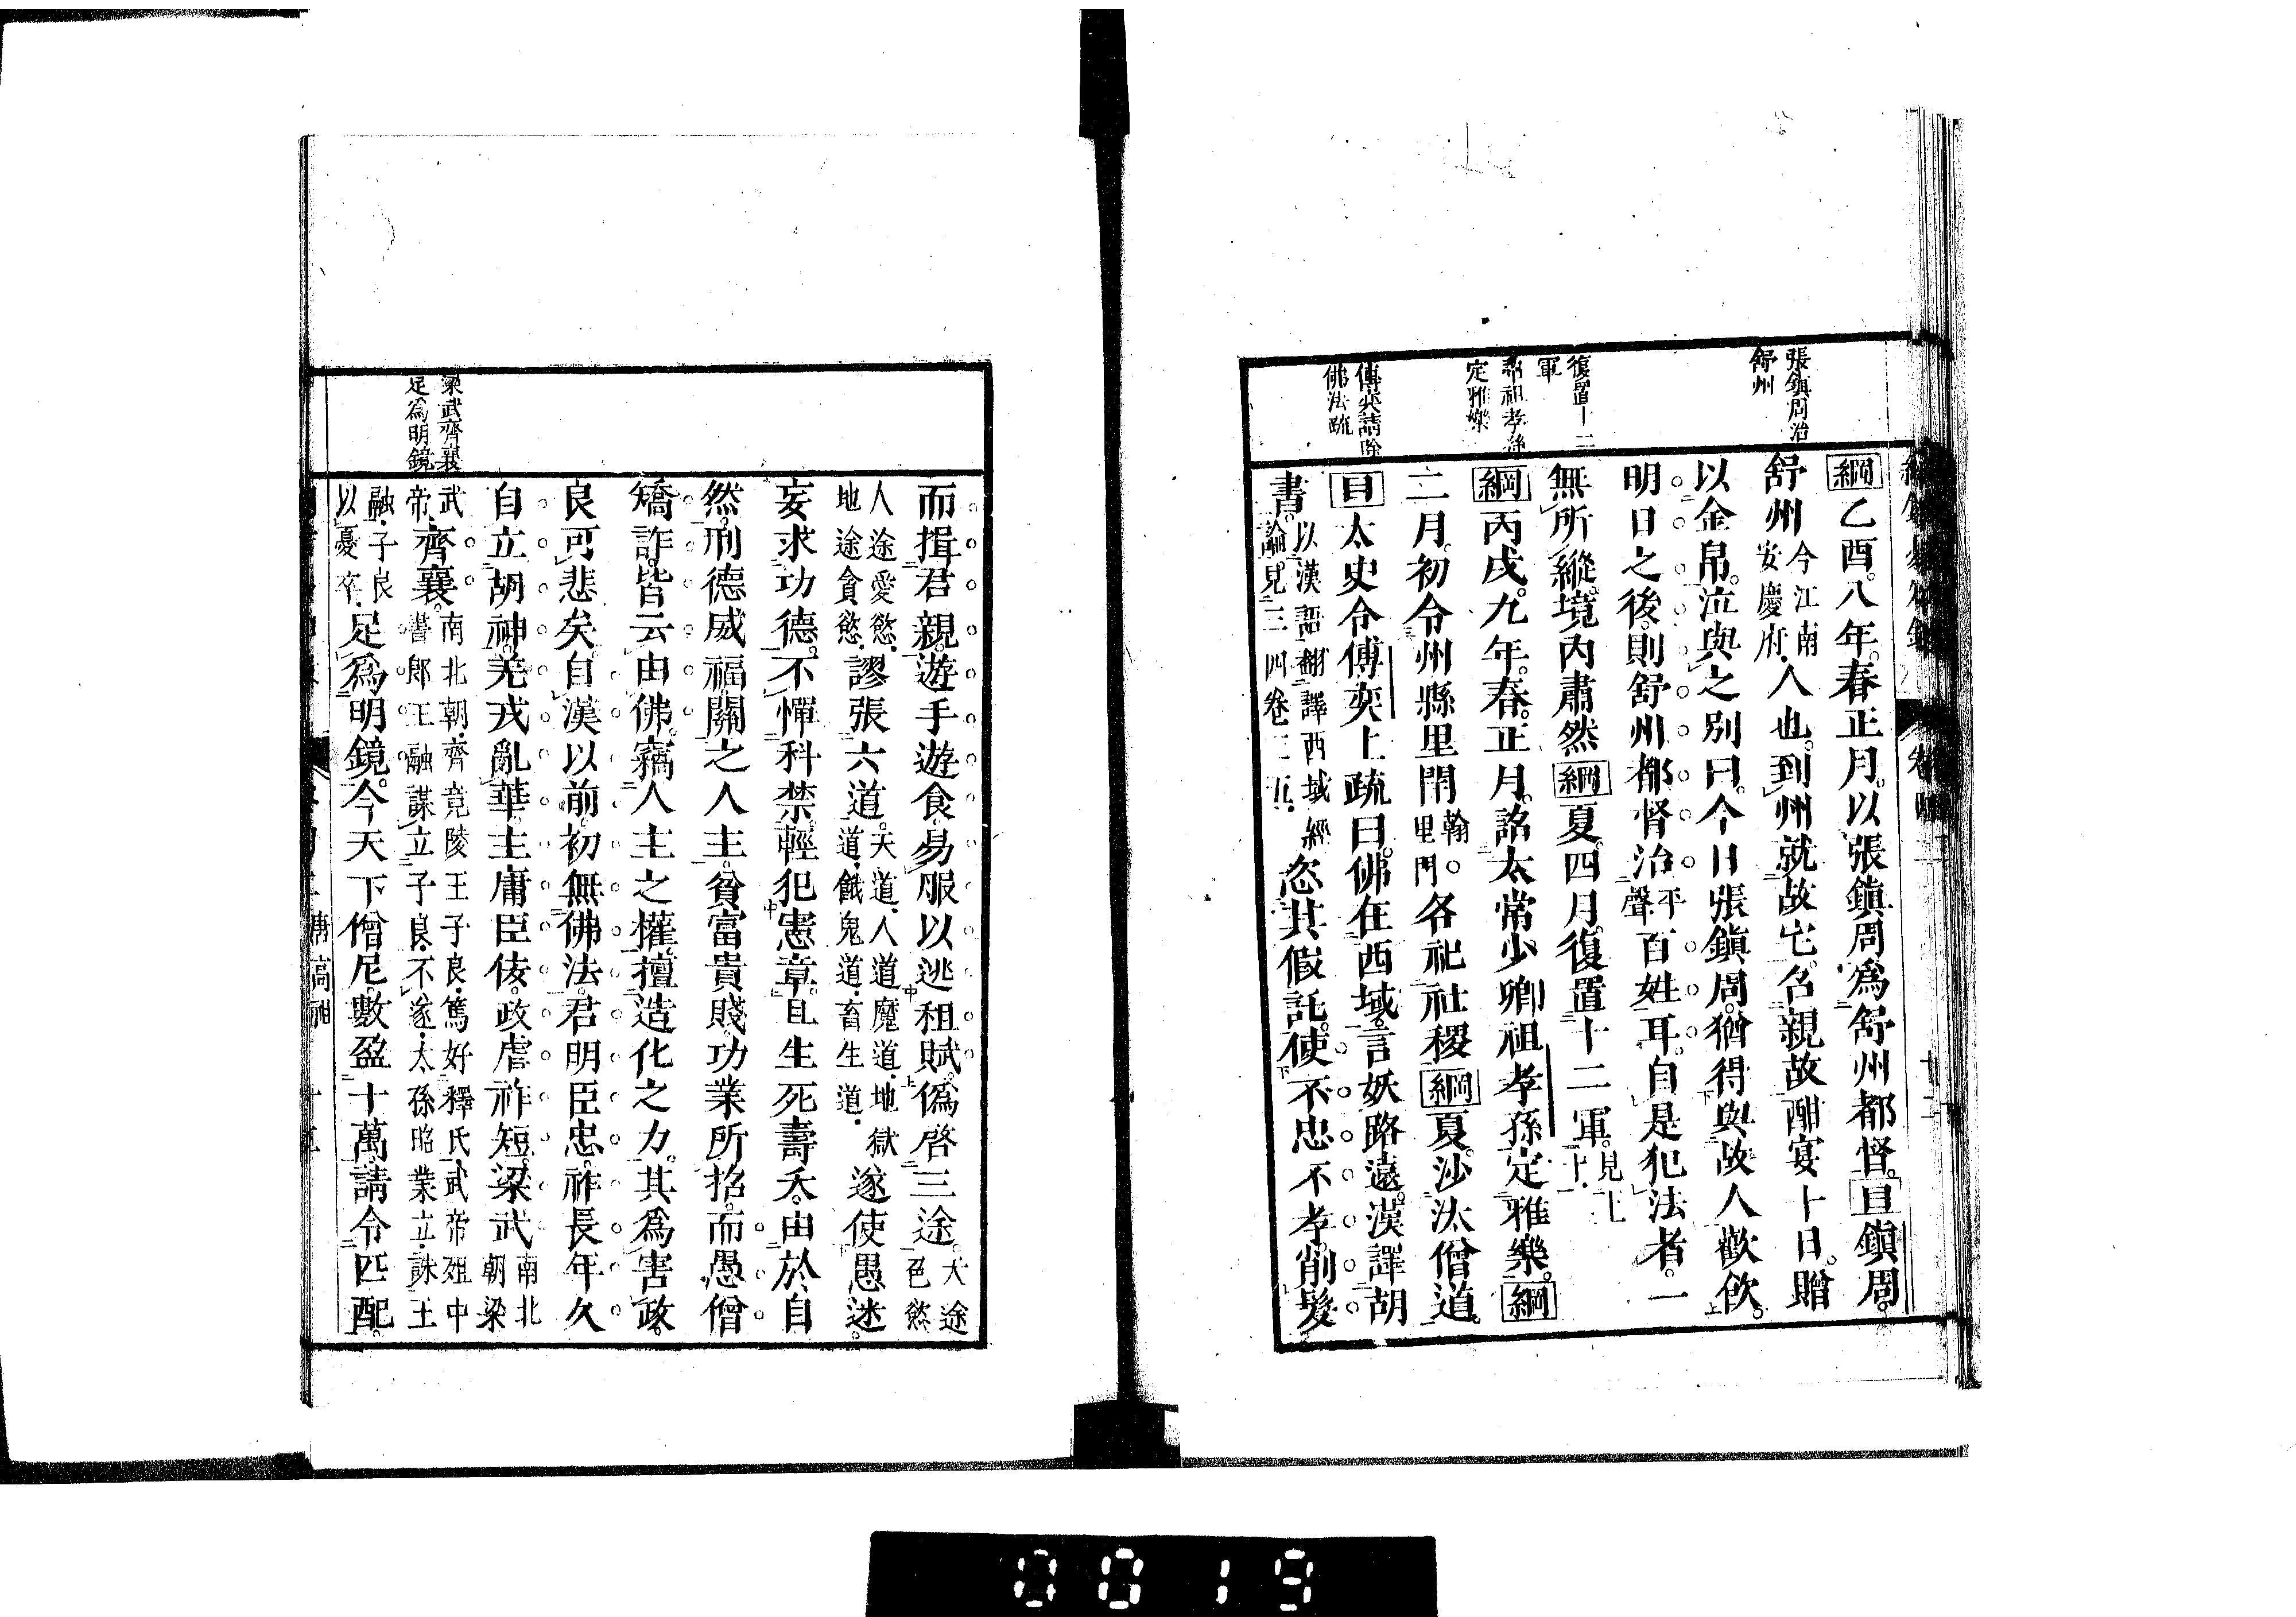 張鎮周治
舒州
復置十二
軍
詔祖孝孫
定雅樂
傅奕請除
佛法疏
綱乙酉。八年。春正月。以張鎮周爲舒州都督。目鎮周。
舒州今江南安慶府。人也。到州就故宅。召親故酣宴十日。贈
以金帛。泣與之別曰。今日張鎮周。猶得與故人歡飲。
明日之後。則舒州都督治平聲百姓耳。自是犯法者。一
無所縱。境内肅然綱夏。四月。復置十二軍。見上十一。
綱丙戌。九年。春。正月。詔太常少卿祖孝孫定雅樂。綱
二月。初令州縣里閈翰。里門。各祀社稷綱夏。沙汰僧道。
目太史令傅奕上疏曰。佛在西域。言妖路遠。漢譯胡
書。以漢語翻譯西域經論。見三四卷二五。恣其假託。使不忠不孝。削髮
而揖君親。遊手遊食。易服以逃租賦。僞啓三途。大途色慾
人途愛慾。地途貪慾。謬張六道。天道。人道魔道。地獄道。餓鬼道。畜生道。遂使愚迷。
妄求功德。不憚科禁。輕犯憲章。且生死壽夭。由於自
然。刑德威福。關之人主。貧富貴賤。功業所招。而愚僧
矯詐。皆云由佛。竊人主之權。擅造化之力。其爲害政。
良可悲矣。自漢以前。初無佛法。君明臣忠。祚長年久
自立胡神。羌戎亂華。主庸臣佞。政虐祚短。梁武南北朝梁
武帝。齊襄。南北朝。齊竟陵王子良。篤好釋氏。武帝殂中書郎王融謀立子良。不遂。太孫昭業立。誅王
融。子良以憂卒。足爲明鏡。今天下僧尼。數盈十萬。請令匹配。
梁武齊襄
足爲明鏡
唐高祖
0019